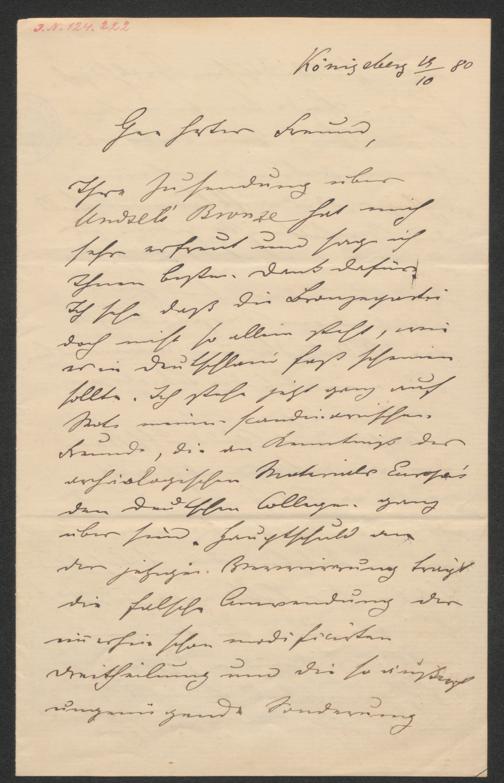 J. N. 124.222
Königsberg 19/10 80
Geehrter Freund,
Ihre Zusendung über
Undset's Bronze hat mich
sehr erfreut und sage ich
Ihnen besten Dank dafür.
Ich sehe daß die Bronzepartei
doch nicht so allein steht, wie
es in Deutschland fast scheinen
sollte. Ich stehe jetzt ganz auf
Seite meiner scandinavischen
Freunde, die an Kenntniß des
archäologischen Materials Europa's
den deutschen Collegen ganz
über sind. Hauptschuld an
der jetzigen Verwirrung trägt
die falsche Anwendung der
immerhin schon modificirten
Dreitheilung und die so äußerst
ungenügende Sonderung